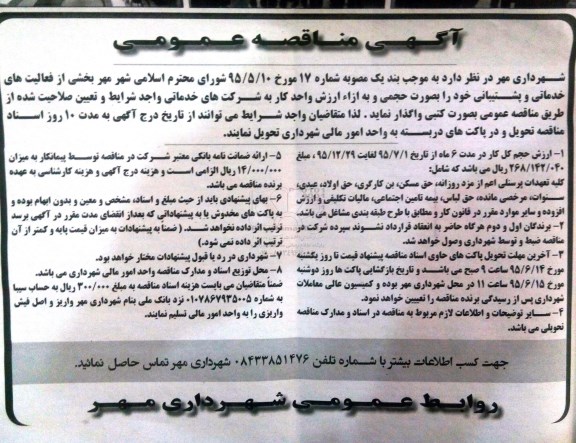 آگهی مناقصه عمومی
شهرداری مهر در نظر دارد به موجب بند یک مصوبه شماره ۱۷ مورخ ۹۵/۵/۱۰ شورای محترم اسلامی شهر مهر بخشی از فعالیت های
خدماتی و پشتیبانی خود را بصورت حجمی و به ازاء ارزش واحد کار به شرکت های خدماتی واجد شرایط و تعیین صلاحیت شده از
طریق مناقصه عمومی بصورت کتبی واگذار نماید . لذا متقاضیان واجد شرایط می توانند از تاریخ درج آگهی به مدت ۱۰ روز اسناد
مناقصه تحویل و در پاکت های دربسته به واحد امور مالی شهرداری تحویل نمایند.
۱- ارزش حجم کل کار در مدت ۶ ماه از تاریخ ۹۵/۷/۱ لغایت ۹۵/۱۲/۲۹ ، مبلغ
۲۶۸/۱۴۲/۰۴۰ ریال می باشد که شامل:
کلیه تعهدات پرسنلی اعم از مزد روزانه، حق مسکن، بن کارگری، حق اولاد، عیدی،
سنوات، مرخصی مانده، حق لباس، بیمه تامین اجتماعی، مالیات تکلیفی و ارزش
افزوده و سایر موارد مقرر در قانون کار و مطابق با طرح طبقه بندی مشاغل می باشد.
۲- برندگان اول و دوم هرگاه حاضر به انعقاد قرارداد نشوند سپرده شرکت در
مناقصه ضبط و توسط شهرداری وصول خواهد شد.
۳- آخرین مهلت تحویل پاکت های حاوی اسناد مناقصه پیشنهاد قیمت تا روز یکشنبه
مورخ ۹۵/۶/۱۴ ساعت ۹ صبح می باشد و تاریخ بازگشایی پاکت ها روز دوشنبه
مورخ ۹۵/۶/۱۵ ساعت ۱۱ در محل شهرداری مهر بوده و کمیسیون عالی معاملات
شهرداری پس از رسیدگی برنده مناقصه را تعیین خواهد نمود.
۴- سایر توضیحات و اطلاعات لازم مربوط به مناقصه در اسناد و مدارک مناقصه
تحویلی می باشد.
۵- ارائه ضمانت نامه بانکی معتبر شرکت در مناقصه توسط پیمانکار به میزان
۱۴/۰۰۰/۰۰۰ ریال الزامی است و هزینه درج آگهی و هزینه کارشناسی به عهده
برنده مناقصه می باشد.
۶- بهای پیشنهادی باید از حیث مبلغ و اسناد، مشخص و معین و بدون ابهام بوده و
به پاکت های مخدوش یا به پیشنهاداتی که بعداز انقضای مدت مقرر در آگهی برسد
ترتیب اثر داده نخواهد شد. ( ضمناً به پیشنهادات به میزان قیمت پایه و کمتر از آن
ترتیب اثر داده نمی شود.)
۷- شهرداری در رد یا قبول پیشنهادات مختار خواهد بود.
۸- محل توزیع اسناد و مدارک مناقصه واحد امور مالی شهرداری می باشد.
ضمناً متقاضیان می بایست هزینه اسناد مناقصه به مبلغ ۳۰۰/۰۰۰ ریال به حساب سیبا
به شماره ۰۱۰۷۸۶۷۹۳۵۰۰۵ نزد بانک ملی بنام شهرداری مهر واریز و اصل فیش
واریزی را به واحد امور مالی تسلیم نمایند.
جهت کسب اطلاعات بیشتر با شماره تلفن ۰۸۴۳۳۸۵۱۴۷۶ شهرداری مهر تماس حاصل نمائید.
روابط عمومی شهرداری مهر